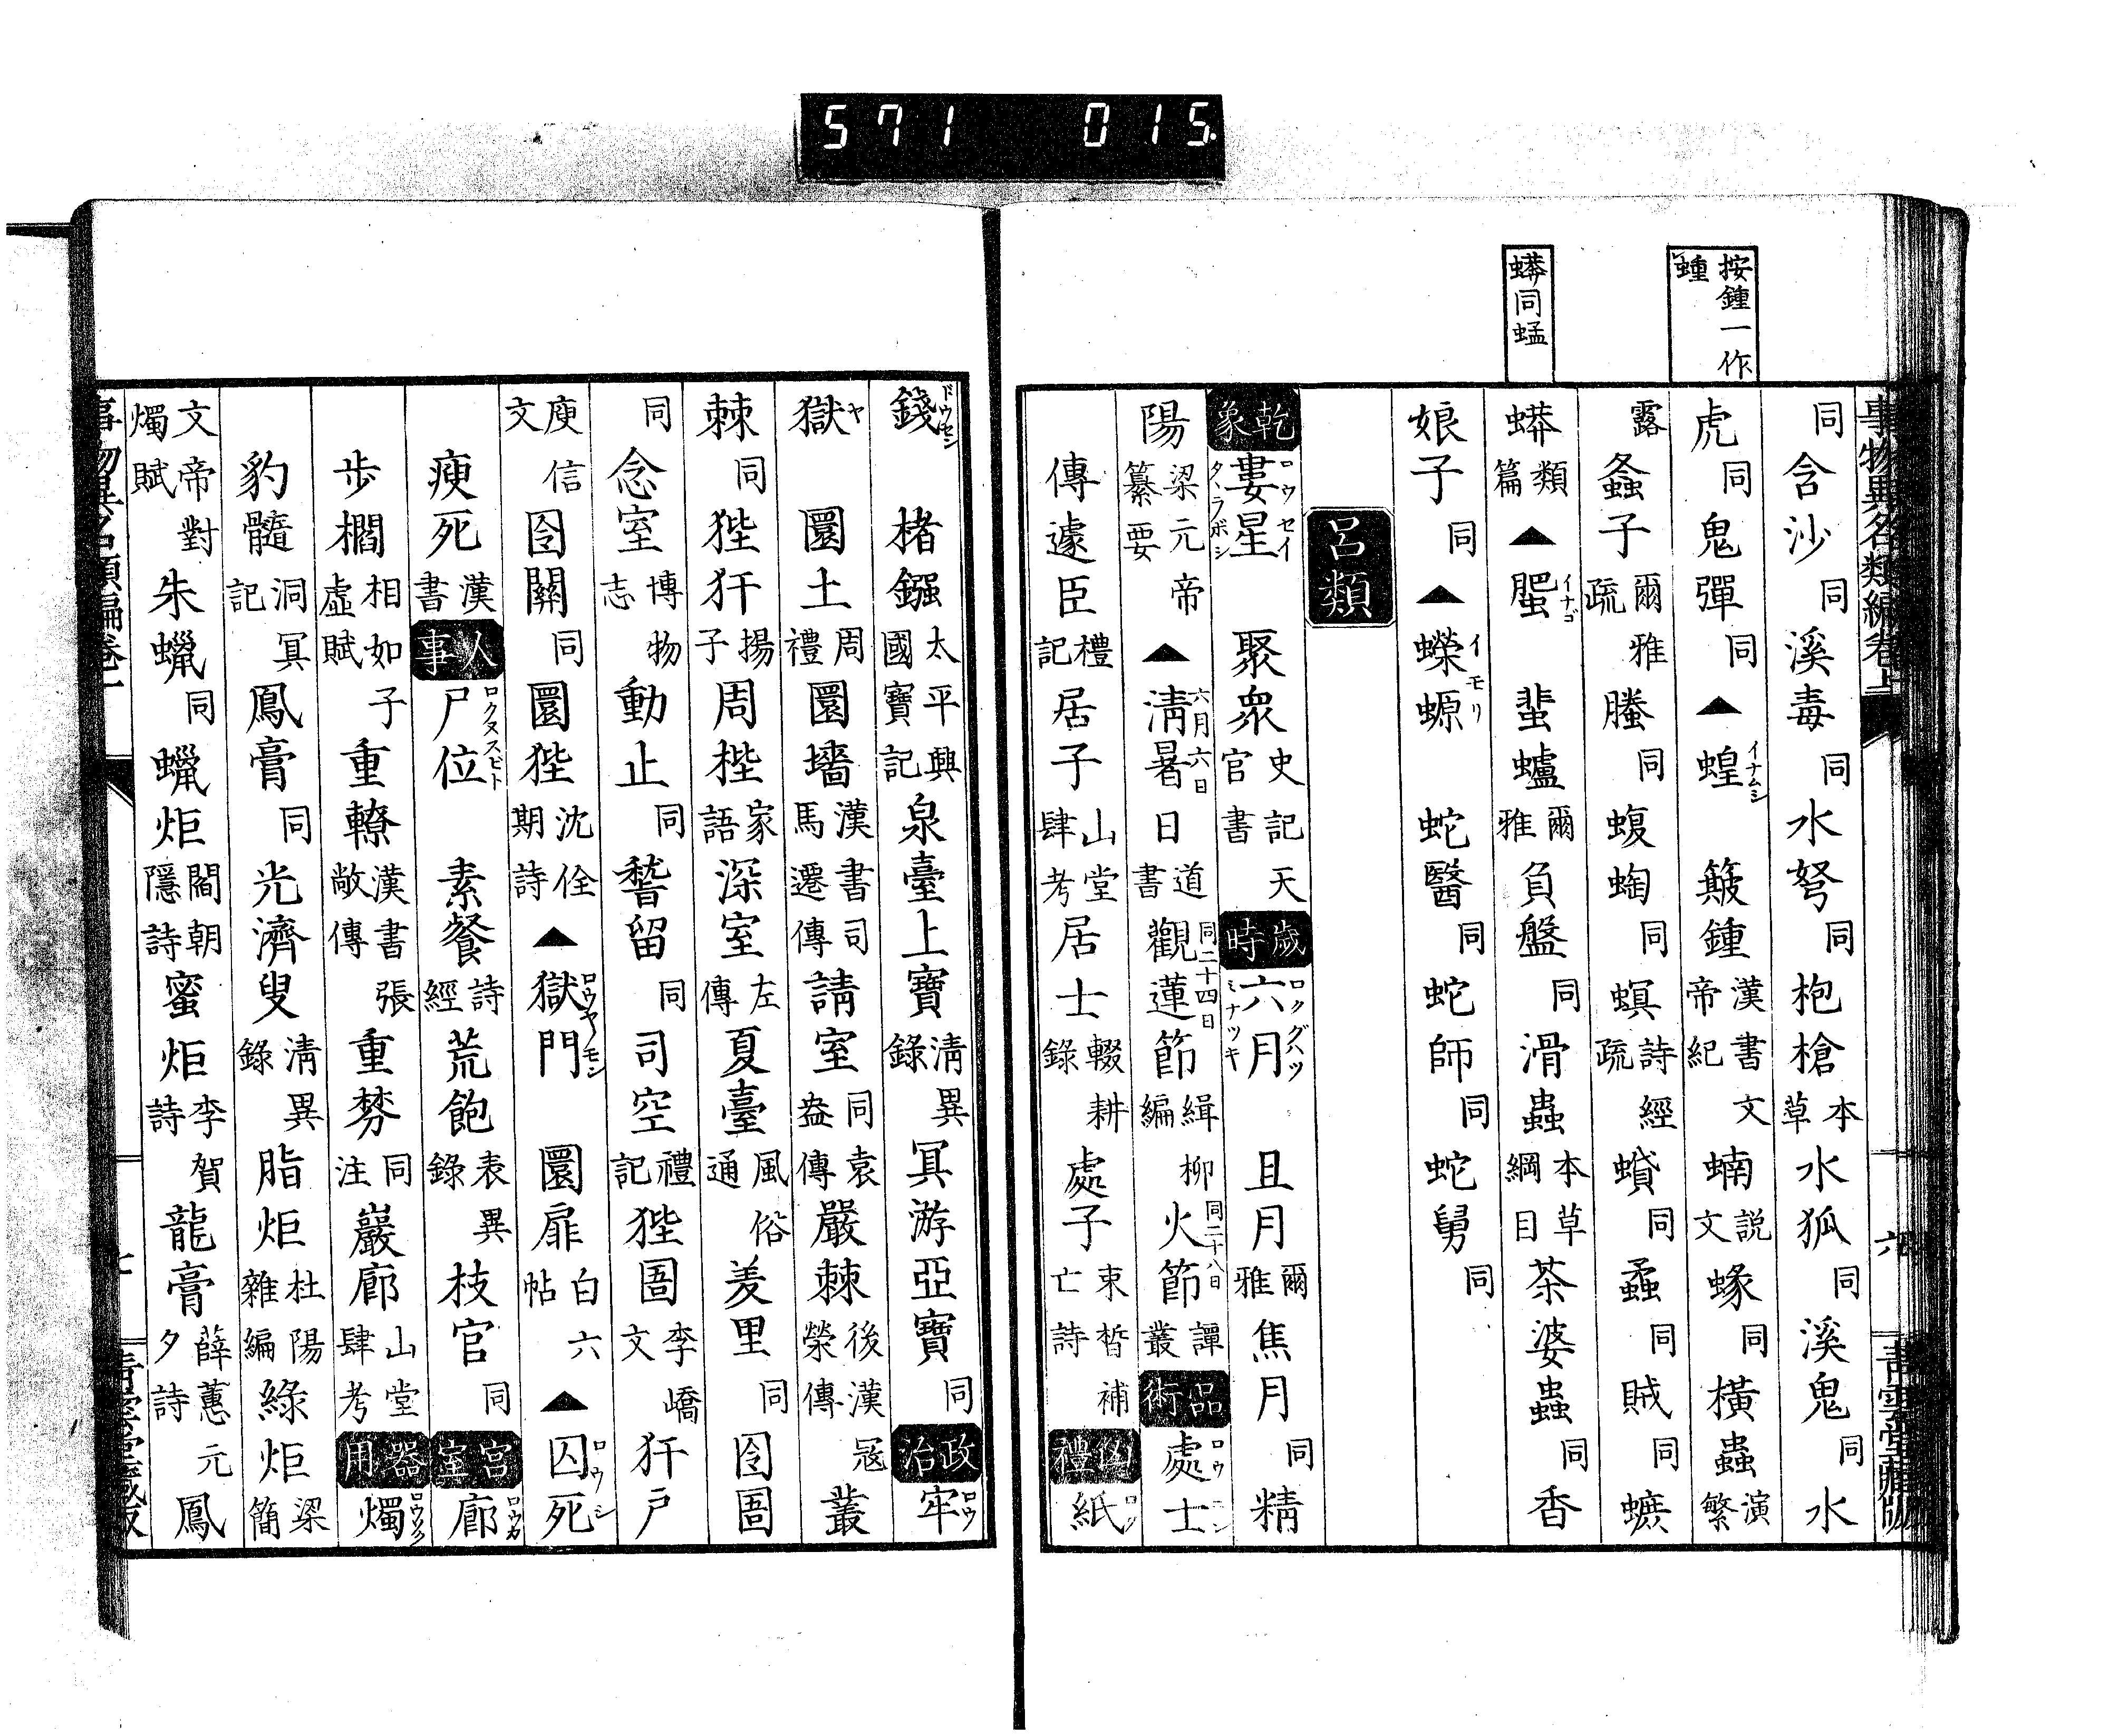 571 015
按鍾一作
蝩
蟒同蜢
事物異名類編卷上
六
青雲堂藏版
同含沙同溪毒同水弩同枹槍本草水狐同溪鬼同水
虎同鬼彈同▲蝗イナムシ簸鍾漢書文帝紀蝻説文蝝同橫蟲演繁
露螽子爾雅疏螣同蝮蜪同螟詩經疏蟘同蟊同賊同蠊
蟒類篇▲䘃イナゴ蜚蠦爾雅負盤同滑蟲本草綱目茶婆蟲同香
娘子同▲蠑螈イモリ蛇醫同蛇師同蛇舅同
呂類
乾象婁星ロウセイタヽラボシ聚衆史記天官書歲時六月ロクグハツミナツキ且月爾雅焦月同精
陽梁元帝纂要▲清暑日六月六日道書觀蓮節同二十四日緝柳編火節同二十八日譚叢品術處士ロウニン
傳遽臣禮記居子山堂肆考居士輟耕錄處子束晳補亡詩凶禮紙ロウ
錢ドウセン楮鏹太平興國寶記泉臺上寶清異錄冥游亞寶同政治牢ロウ
獄ヤ圜土周禮圜墻漢書司馬遷傳請室同袁盎傳嚴棘後漢寇榮傳叢
棘同狴犴揚子周梐家語深室左傳夏臺風俗通羑里同囹圄
同念室博物志動止同稽留同司空禮記狴圄李嶠文犴戶
庾信文囹關同圜狴沈佺期詩▲獄門ロウヤノモン圜扉白六帖▲囚死ロウシ
瘐死漢書人事尸位ロクヌスビト素餐詩經荒飽表異錄枝官同宮室廊ロウカ
步櫩相如子虛賦重轑漢書張敞傳重棼同注巖廊山堂肆考器用燭ロウソク
豹髓洞冥記鳳膏同光濟叟清異錄脂炬杜陽雜編綠炬梁簡
文帝對燭賦朱蠟同蠟炬閻朝隱詩蜜炬李賀詩龍膏薛蕙元夕詩鳳
事物異名類編卷上
七
青雲堂藏版